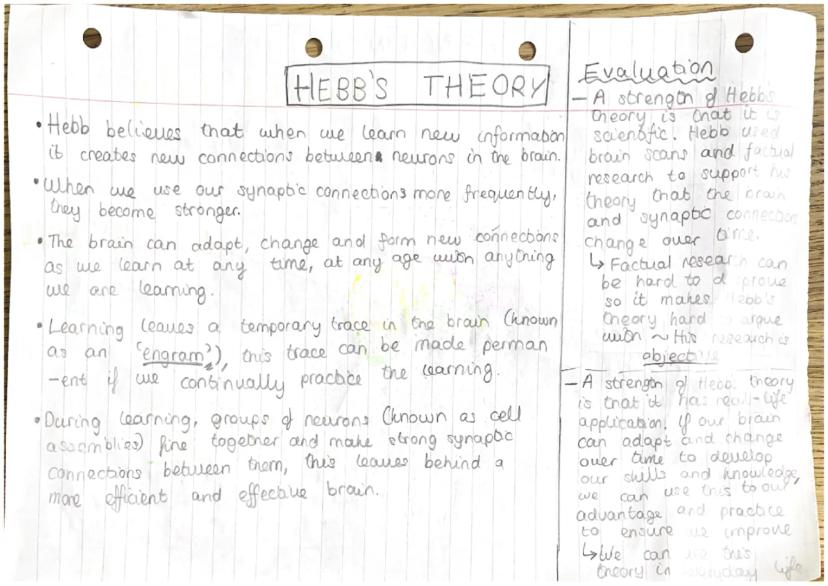 HEBB'S THEORY
• Hebb believes that when we learn new information
it creates new connections between neurons in the brain.
• When we use our synaptic connections more frequently,
they become stronger.
• The brain can adapt, change and form new connections
as we learn at any time, at any age with anything
we are learning.
• Learning leaves a temporary trace in the brain (known
as an 'engram'), this trace can be made perman
-ent if we continually practice the learning.
• During learning, groups of neurons (known as cell
assemblies) fire together and make strong synaptic
connections between them, this leaves behind a
more efficient and effective brain.
Evaluation
- A strength of Hebb's
theory is that it is
scientific. Hebb used
brain scans and factual
research to support his
theory that the brain
and synaptic connection
change over time.
↳ Factual research can
be hard to disprove
so it makes Hebb's
theory hard to argue
with ~ His research is
objective
- A strength of Hebbs theory
is that it has real-life
application. If our brain
can adapt and change
over time to develop
our skills and knowledge,
we can use this to our
advantage and practice
to ensure we improve
↳ We can use this
theory in everyday life